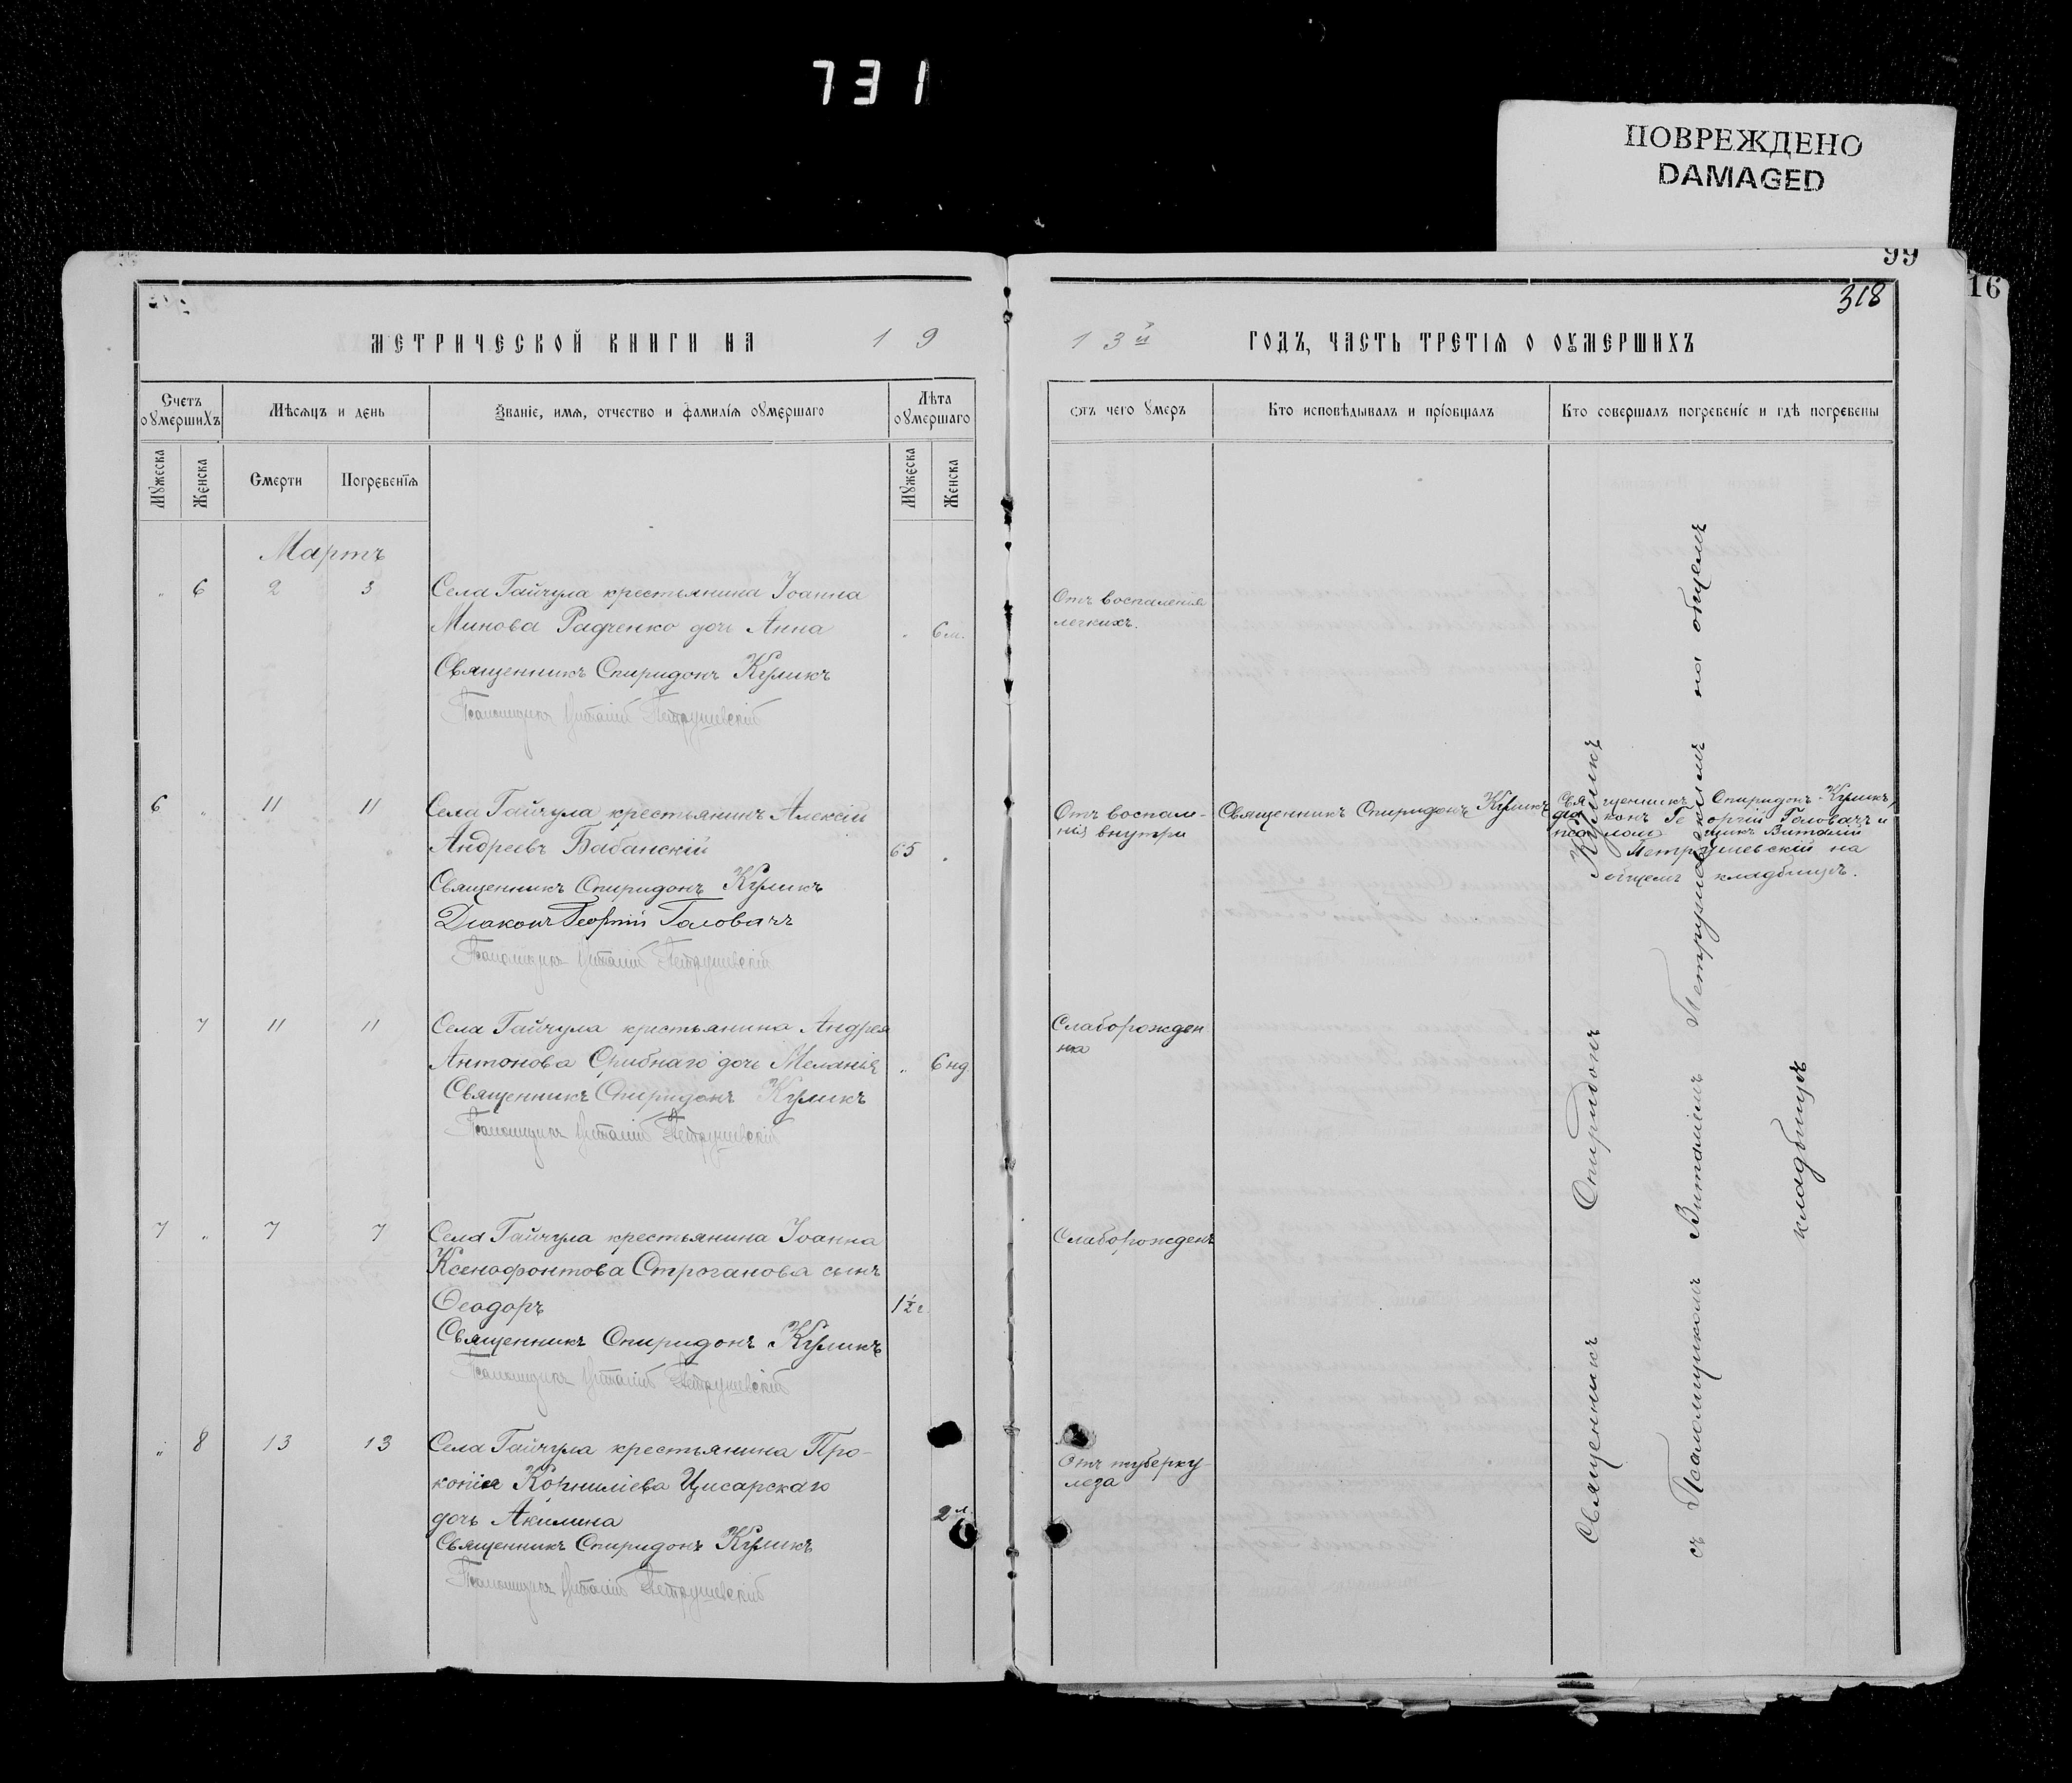 731
ПОВРЕЖДЕНО
DAMAGED
99
16
318
МЕТРИЧЕСКОЙ КНИГИ НА 19
13й ГОДЪ, ЧАСТЬ ТРЕТІЯ О ОУМЕРШИХЪ
Счетъ оумершихъ
Мѣсяцъ и день
Званіе, имя, отчество и фамилія оумершаго
Лѣта оумершаго
Отъ чего умеръ
Кто исповѣдывалъ и пріобщалъ
Кто совершалъ погребеніе и гдѣ погребены
Мужеска
Женска
Смерти
Погребенія
Мужеска
Женска
Мартъ
„ 6 2 3 Села Гайчула крестьянина Іоанна
Минова Радченко дочь Анна „ 6 м.
Отъ воспаленія
легкихъ.
Священникъ Спиридонъ Куликъ
Псаломщикъ Виталій Петрушевскій
6 „ 11 11 Села Гайчула крестьянинъ Алексій
Андреевъ Бабанскій 65 „
Отъ воспале-
нія внутри
Священникъ Спиридонъ Куликъ
Священникъ Спиридонъ Куликъ,
діаконъ Георгій Головачъ и
псаломщикъ Виталій
Петрушевскій на
общемъ кладбищѣ.
Священникъ Спиридонъ Куликъ
Діаконъ Георгій Головачъ
Псаломщикъ Виталій Петрушевскій
7 11 11 Села Гайчула крестьянина Андрея
Антонова Срибнаго дочь Меланья „ 6 нд
Слаборожден
на
Священникъ Спиридонъ Куликъ
Псаломщикъ Виталій Петрушевскій
7 „ 7 7 Села Гайчула крестьянина Іоанна
Ксенофонтова Строганова сынъ
Ѳеодоръ 1½ г.
Слаборожденъ
Священникъ Спиридонъ Куликъ
Псаломщикъ Виталій Петрушевскій
„ 8 13 13 Села Гайчула крестьянина Про-
копія Корниліева Цисарскаго
дочь Акилина 2 л.
Отъ туберку-
леза
Священникъ Спиридонъ Куликъ
Псаломщикъ Виталій Петрушевскій
Священникъ Спиридонъ Куликъ
съ Псаломщикомъ Виталіемъ Петрушевскимъ на общемъ
кладбищѣ